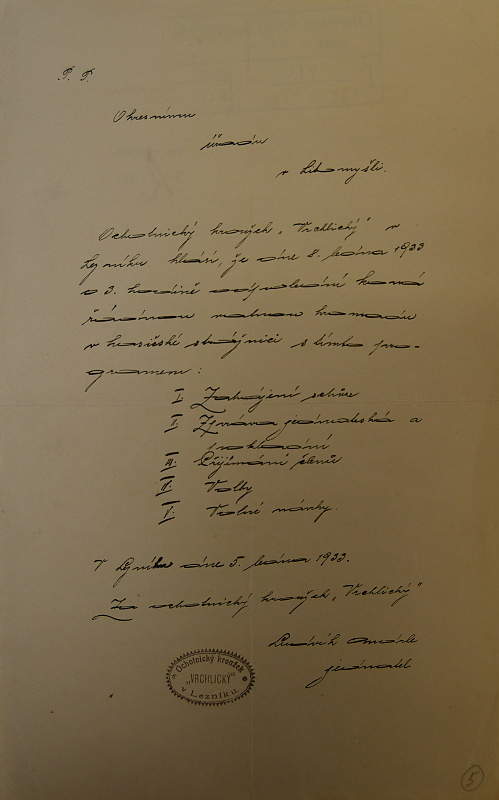 P. P.
Okresnímu
úřadu
v Litomyšli.
Ochotnický kroužek „Vrchlický" v
Lezníku hlásí, že dne 8. ledna 1933
o 3. hodině odpolední koná
řádnou valnou hromadu
v hasičské strážnici s tímto pro-
gramem:
I. Zahájení schůze
II. Zpráva jednatelská a
pokladní
III. Přijímání členů
IV. Volby
V. Volné návrhy.
V Lezníku dne 5. ledna 1933.
Za ochotnický kroužek „Vrchlický"
Ludvík
jednatel
Ochotnický kroužek
„VRCHLICKÝ"
v Lezníku.
5